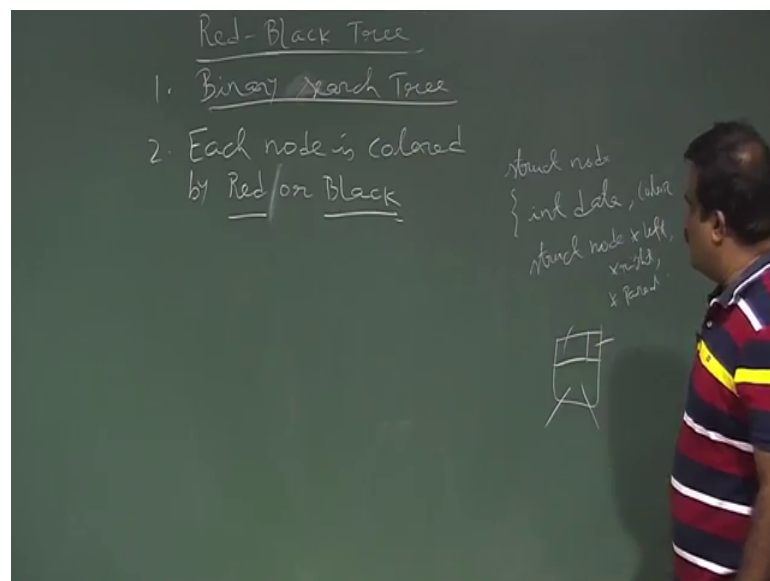 Red-Black Tree
1. Binary Search Tree
2. Each node is colored
by Red/or Black
struct node
{ int data, color
struct node *left,
*right,
*Parent